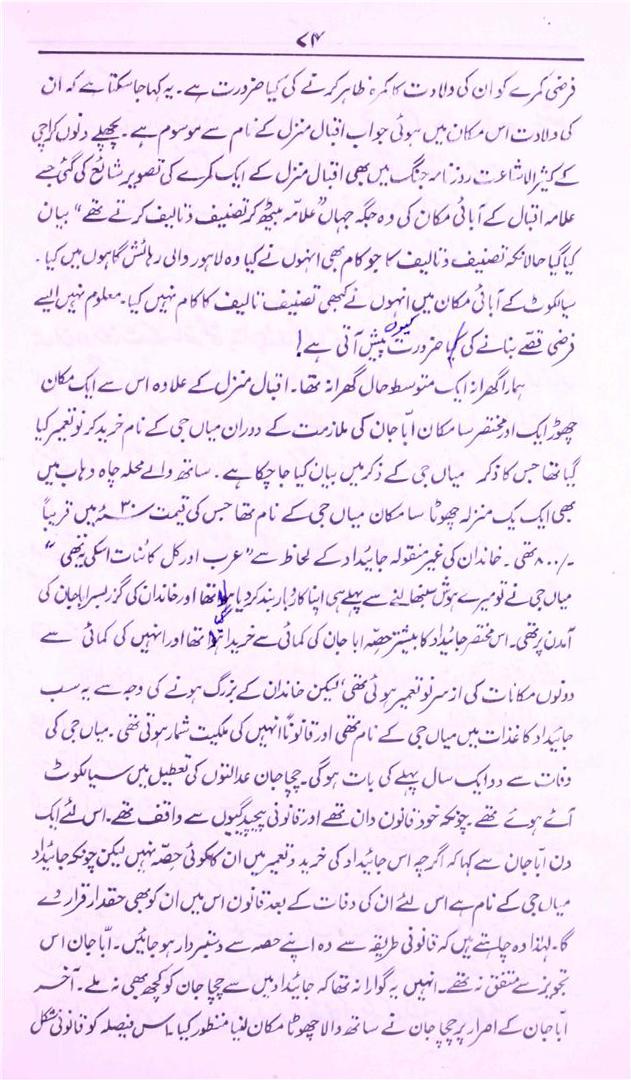 ۷۴
فرضی کمرے کو ان کی ولادت کا کمرہ ظاہر کرنے کی کیا ضرورت ہے۔ یہ کہا جا سکتا ہے کہ ان
کی ولادت اس مکان میں ہوئی جو اب اقبال منزل کے نام سے موسوم ہے۔ پچھلے دنوں کراچی
کے کثیر الاشاعت روزنامہ جنگ میں بھی اقبال منزل کے ایک کمرے کی تصویر شائع کی گئی جسے
علامہ اقبال کے آبائی مکان کی وہ جگہ جہاں "علامہ بیٹھ کر تصنیف و تالیف کرتے تھے" بیان
کیا گیا حالانکہ تصنیف و تالیف کا جو کام بھی انہوں نے کیا وہ لاہور والی رہائش گاہوں میں کیا۔
سیالکوٹ کے آبائی مکان میں انہوں نے کبھی تصنیف تالیف کا کام نہیں کیا۔ معلوم نہیں ایسے
فرضی قصے بنانے کی ضرورت کیوں پیش آتی ہے!
ہمارا گھرانہ ایک متوسط حال گھرانہ تھا۔ اقبال منزل کے علاوہ اس سے ایک مکان
چھوڑ ایک اور مختصر سا مکان ابا جان کی ملازمت کے دوران میاں جی کے نام خرید کر نو تعمیر کیا
گیا تھا جس کا ذکر میاں جی کے ذکر میں بیان کیا جا چکا ہے۔ ساتھ والے محلہ چاہ وہاب میں
بھی ایک یک منزلہ چھوٹا سا مکان میاں جی کے نام تھا جس کی قیمت ۳۰ء میں قریباً
۸۰۰/- تھی۔ خاندان کی غیر منقولہ جائیداد کے لحاظ سے "عرب اور کل کائنات اسکی یہ تھی"
میاں جی نے تو میرے ہوش سنبھالنے سے پہلے ہی اپنا کاروبار بند کر دیا تھا اور خاندان کی گزر بسر ابا جان کی
آمدن پر تھی۔ اس مختصر جائیداد کا بیشتر حصہ ابا جان کی کمائی سے خریدا گیا تھا اور انہیں کی کمائی سے
دونوں مکانات کی از سر نو تعمیر ہوئی تھی، لیکن خاندان کے بزرگ ہونے کی وجہ سے یہ سب
جائیداد کاغذات میں میاں جی کے نام تھی اور قانوناً انہیں کی ملکیت شمار ہوتی تھی۔ میاں جی کی
وفات سے دو ایک سال پہلے کی بات ہوگی۔ چچا جان عدالتوں کی تعطیل میں سیالکوٹ
آئے ہوئے تھے۔ چونکہ خود قانون دان تھے اور قانونی پیچیدگیوں سے واقف تھے۔ اس لئے ایک
دن ابا جان سے کہا کہ اگرچہ اس جائیداد کی خرید و تعمیر میں ان کا کوئی حصہ نہیں لیکن چونکہ جائیداد
میاں جی کے نام ہے اس لئے ان کی وفات کے بعد قانون اس میں ان کو بھی حقدار قرار دے
گا۔ لہٰذا وہ چاہتے ہیں کہ قانونی طریقہ سے وہ اپنے حصہ سے دستبردار ہو جائیں۔ ابا جان اس
تجویز سے متفق نہ تھے۔ انہیں یہ گوارا نہ تھا کہ جائیداد میں سے چچا جان کو کچھ بھی نہ ملے۔ آخر
ابا جان کے اصرار پر چچا جان نے ساتھ والا چھوٹا مکان لینا منظور کیا۔ اس فیصلہ کو قانونی شکل